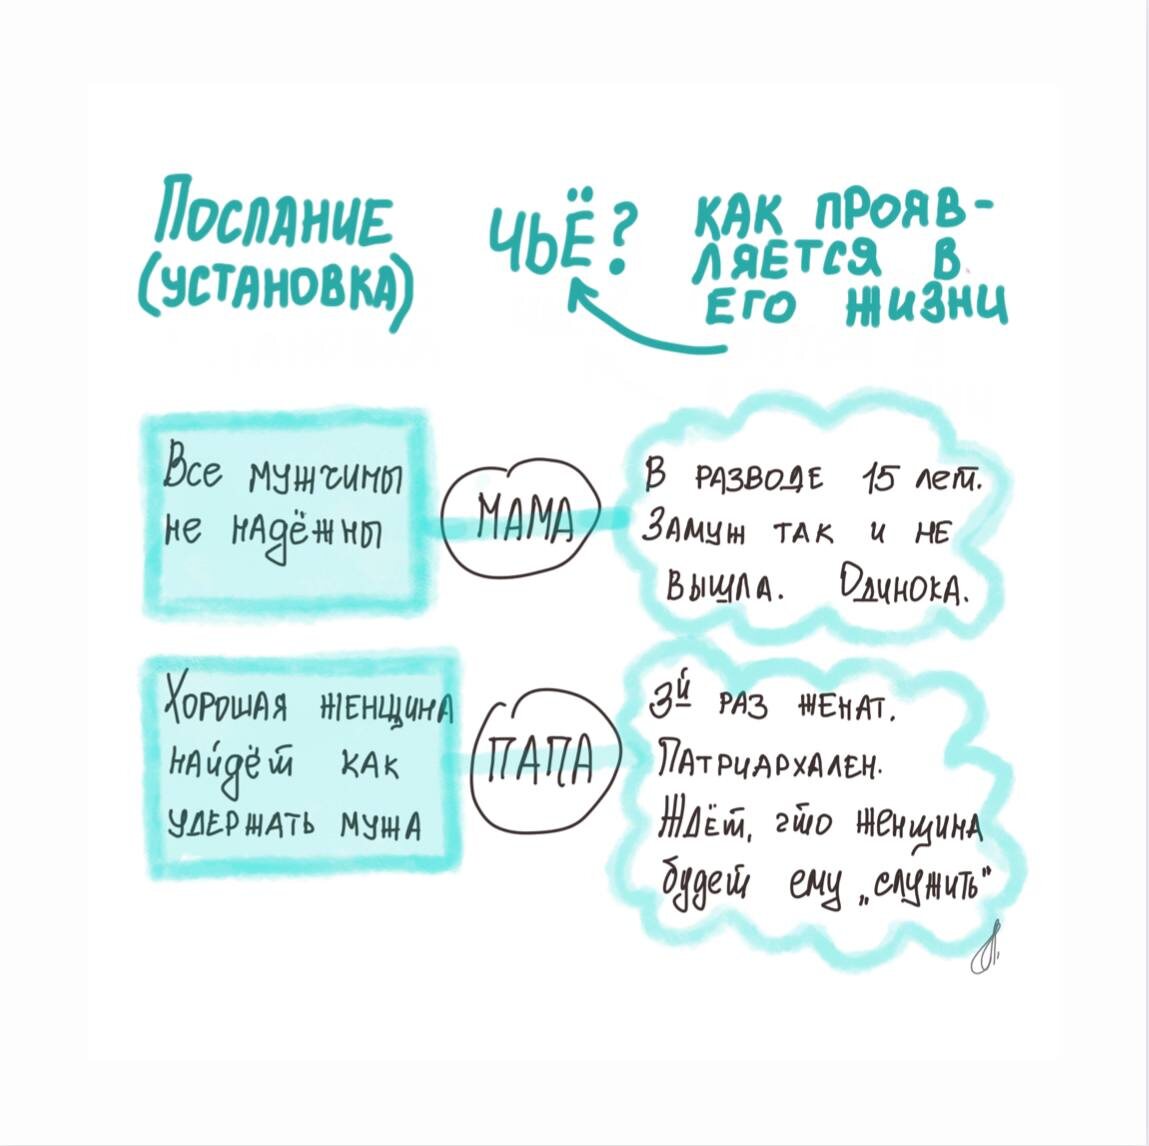 Послание
(установка)
чьё?
как прояв-
ляется в
его жизни
Все мужчины
не надёжны
мама
В разводе 15 лет.
Замуж так и не
вышла. Одинока.
Хорошая женщина
найдёт как
удержать мужа
папа
3й раз женат.
Патриархален.
Ждёт, что женщина
будет ему „служить"